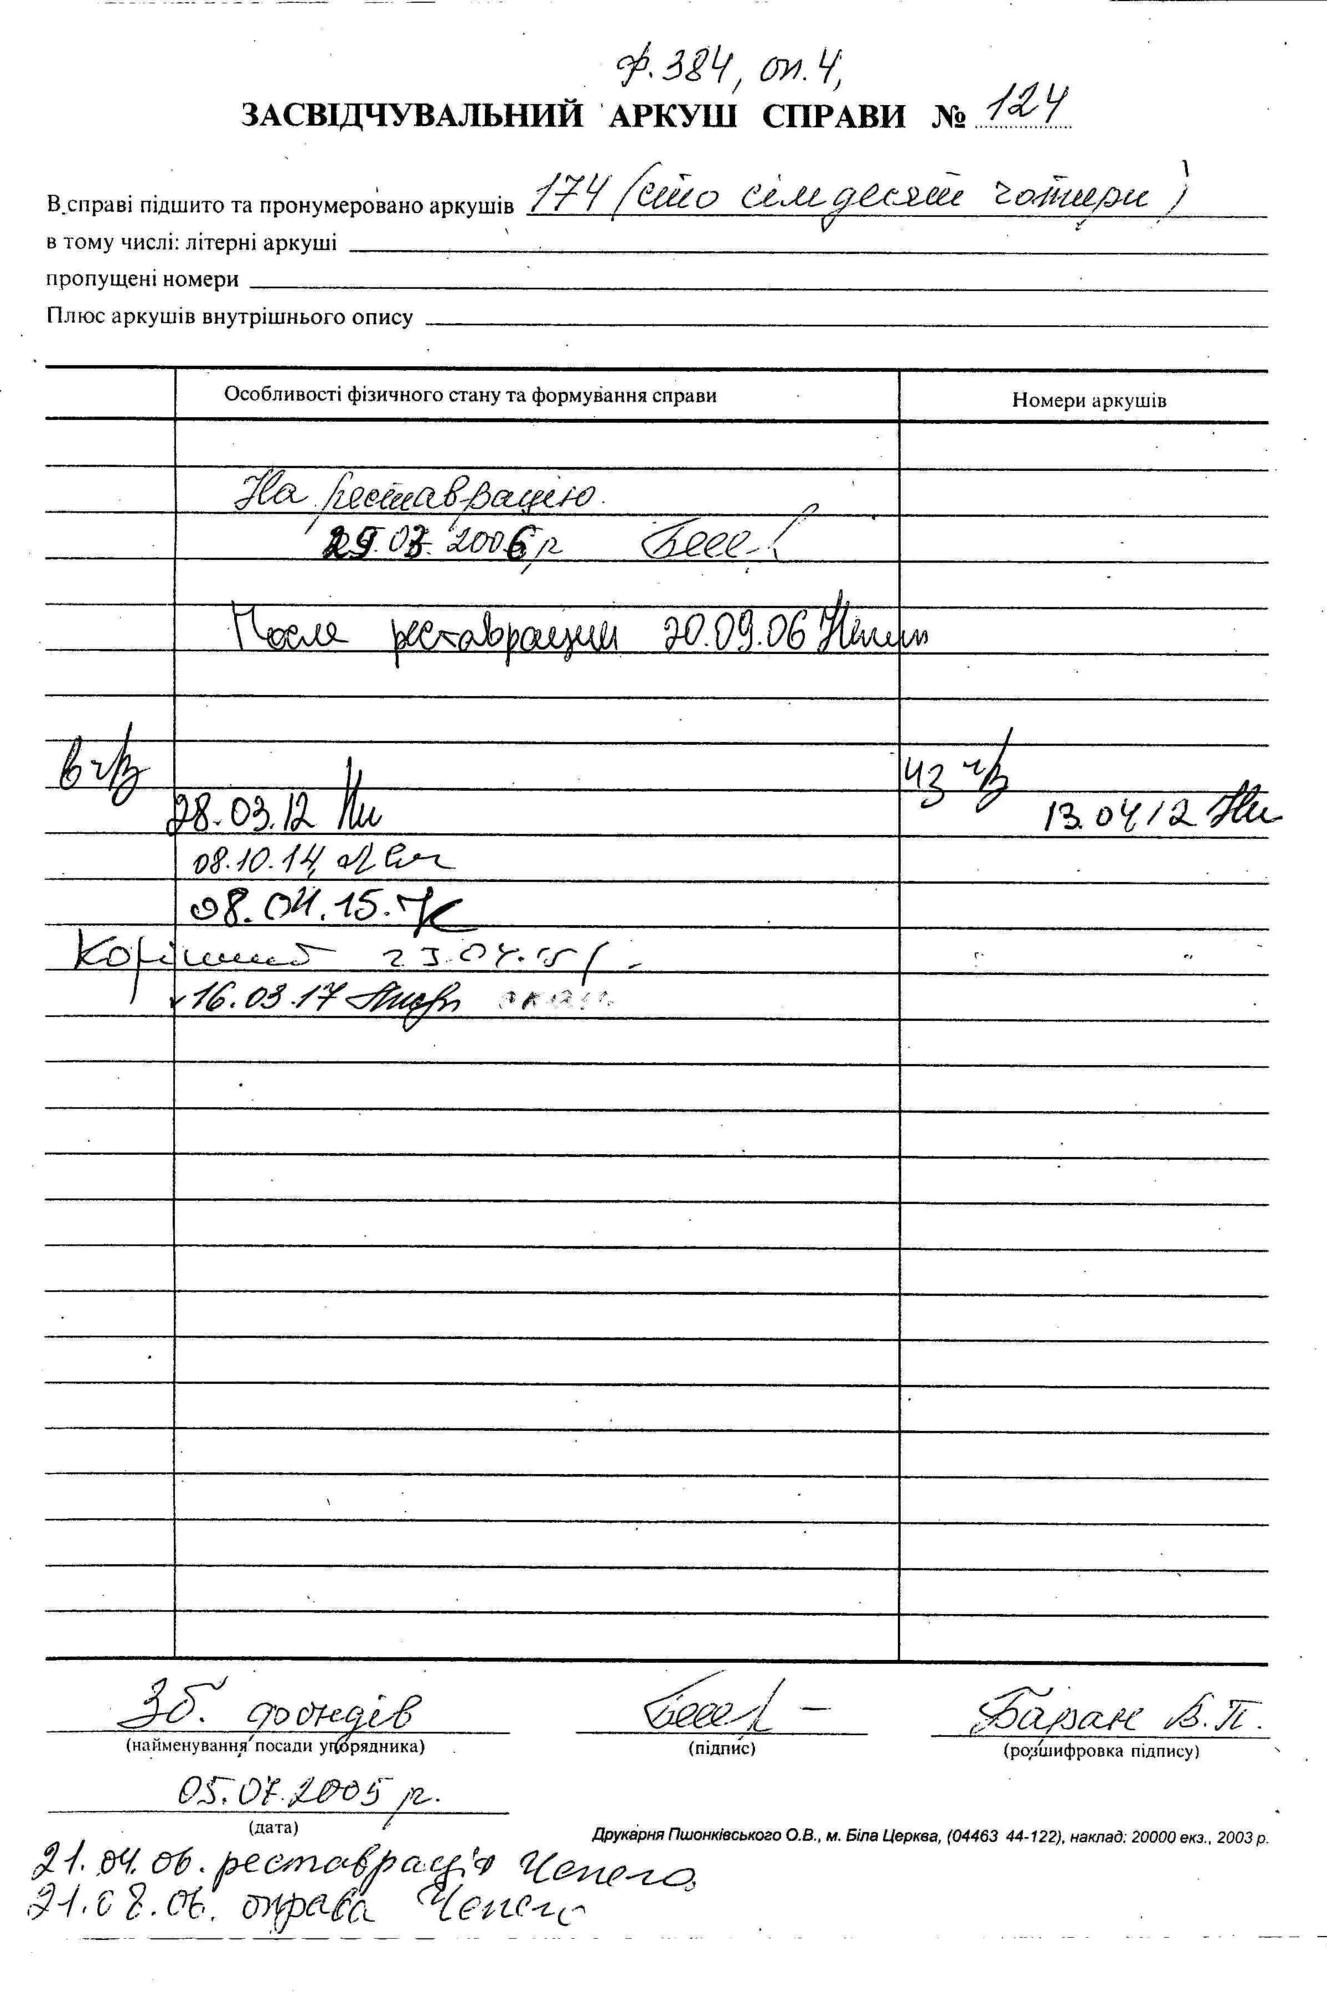 ф. 384, оп. 4,
ЗАСВІДЧУВАЛЬНИЙ АРКУШ СПРАВИ № 124
В справі підшито та пронумеровано аркушів 174 (сто сімдесят чотири)
в тому числі: літерні аркуші
пропущені номери
Плюс аркушів внутрішнього опису
Особливості фізичного стану та формування справи Номери аркушів
На реставрацію.
2006 р
После реставрации 20.09.06
в ч/з из ч/з
28.03.12 13.04 12
08.10.14,
08.04.15.
23.04.15
16.03.17
Зб. фондів Баран В.П.
(найменування посади упорядника) (підпис) (розшифровка підпису)
05.07.2005 р.
(дата)
Друкарня Пшонківського О.В., м. Біла Церква, (04463 44-122), наклад: 20000 екз., 2003 р.
21.04.06. реставрація Чепега
21.08.06. оправа Чепега